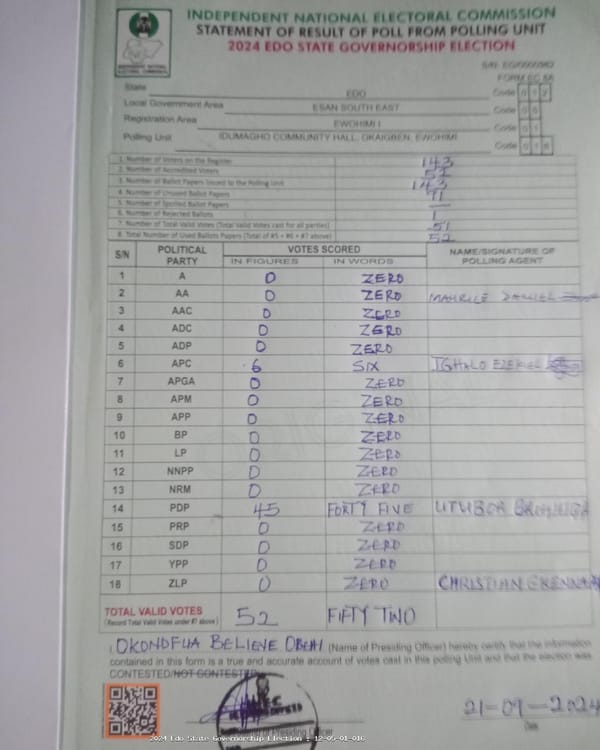 INDEPENDENT NATIONAL ELECTORAL COMMISSION
STATEMENT OF RESULT OF POLL FROM POLLING UNIT
2024 EDO STATE GOVERNORSHIP ELECTION
FORM EC 8A
State EDO Code 0 1 2
Local Government Area ESAN SOUTH EAST Code 0 5
Registration Area EWOHIMI I Code 0 1
Polling Unit IDUMAGHO COMMUNITY HALL, OKAIGBEN, EWOHIMI Code 0 1 6
1. Number of Voters on the Register 143
2. Number of Accredited Voters 52
3. Number of Ballot Papers Issued to the Polling Unit 143
4. Number of Unused Ballot Papers 91
5. Number of Spoiled Ballot Papers —
6. Number of Rejected Ballots 1
7. Number of Total Valid Votes (Total Valid Votes cast for all parties) 51
8. Total Number of Used Ballots Papers (Total of #5 + #6 + #7 above) 52
S/N POLITICAL PARTY VOTES SCORED NAME/SIGNATURE OF POLLING AGENT
IN FIGURES IN WORDS
1 A 0 ZERO
2 AA 0 ZERO
3 AAC 0 ZERO
4 ADC 0 ZERO
5 ADP 0 ZERO
6 APC 6 SIX IGHALO EZEKIEL
7 APGA 0 ZERO
8 APM 0 ZERO
9 APP 0 ZERO
10 BP 0 ZERO
11 LP 0 ZERO
12 NNPP 0 ZERO
13 NRM 0 ZERO
14 PDP 45 FORTY FIVE
15 PRP 0 ZERO
16 SDP 0 ZERO
17 YPP 0 ZERO
18 ZLP 0 ZERO CHRISTIAN
TOTAL VALID VOTES 52 FIFTY TWO
(Record Total Valid Votes under #7 above)
I, OKONOFUA BELIEVE OBEHI (Name of Presiding Officer) hereby certify that the information
contained in this form is a true and accurate account of votes cast in this polling Unit and that the election was
CONTESTED/NOT CONTESTED
21-09-2024
Presiding Officer Date
2024 Edo State Governorship Election : 12-05-01-016